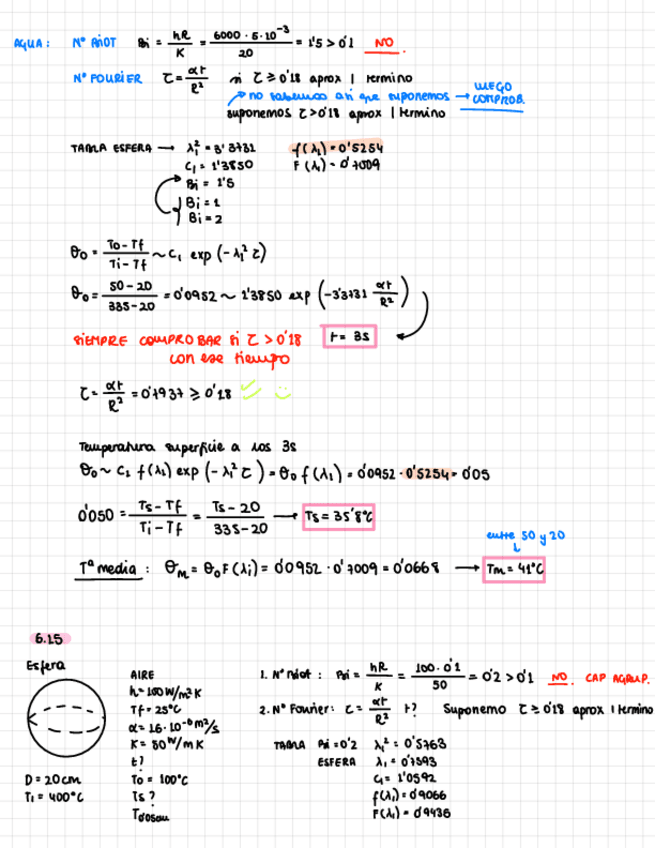 AGUA: Nº BIOT Bi = hR/K = 6000 · 5·10⁻³/20 = 1'5 > 0'1 NO.
Nº FOURIER τ = αt/R² si τ ≥ 0'18 aprox 1 termino
no sabemos así que suponemos → LUEGO COMPROB.
suponemos τ > 0'18 aprox 1 termino
TABLA ESFERA → λ₁² = 3'3731 f(λ₁) = 0'5254
C₁ = 1'3850 F(λ₁) = 0'7009
Bi = 1'5
Bi = 1
Bi = 2
θ₀ = To - Tf/Ti - Tf ~ C₁ exp (-λ₁² τ)
θ₀ = 50 - 20/335 - 20 = 0'0952 ~ 1'3850 exp (-3'3731 αt/R²)
SIEMPRE COMPROBAR si τ > 0'18 t = 3s
con ese tiempo
τ = αt/R² = 0'7937 ≥ 0'18
Temperatura superficie a los 3s
θ₀ ~ C₁ f(λ₁) exp (-λ₁² τ) = θ₀ f(λ₁) = 0'0952 · 0'5254 = 0'05
0'050 = Ts - Tf/Ti - Tf = Ts - 20/335 - 20 → Ts = 35'8ºC
entre 50 y 20
Tª media: θm = θ₀ F(λ₁) = 0'0952 · 0'7009 = 0'0668 → Tm = 41ºC
6.15
Esfera
AIRE
h = 100 W/m² K
Tf = 25ºC
α = 16·10⁻⁶ m²/s
K = 50 W/m K
t?
To = 100ºC
Ts?
D = 20cm
Ti = 400ºC
1. Nº Biot: Bi = hR/K = 100·0'1/50 = 0'2 > 0'1 NO. CAP AGRUP.
2. Nº Fourier: τ = αt/R² t? Suponemo τ ≥ 0'18 aprox 1 termino
TABLA Bi = 0'2 λ₁² = 0'5763
ESFERA λ₁ = 0'7593
C₁ = 1'0592
f(λ₁) = 0'9066
F(λ₁) = 0'9436